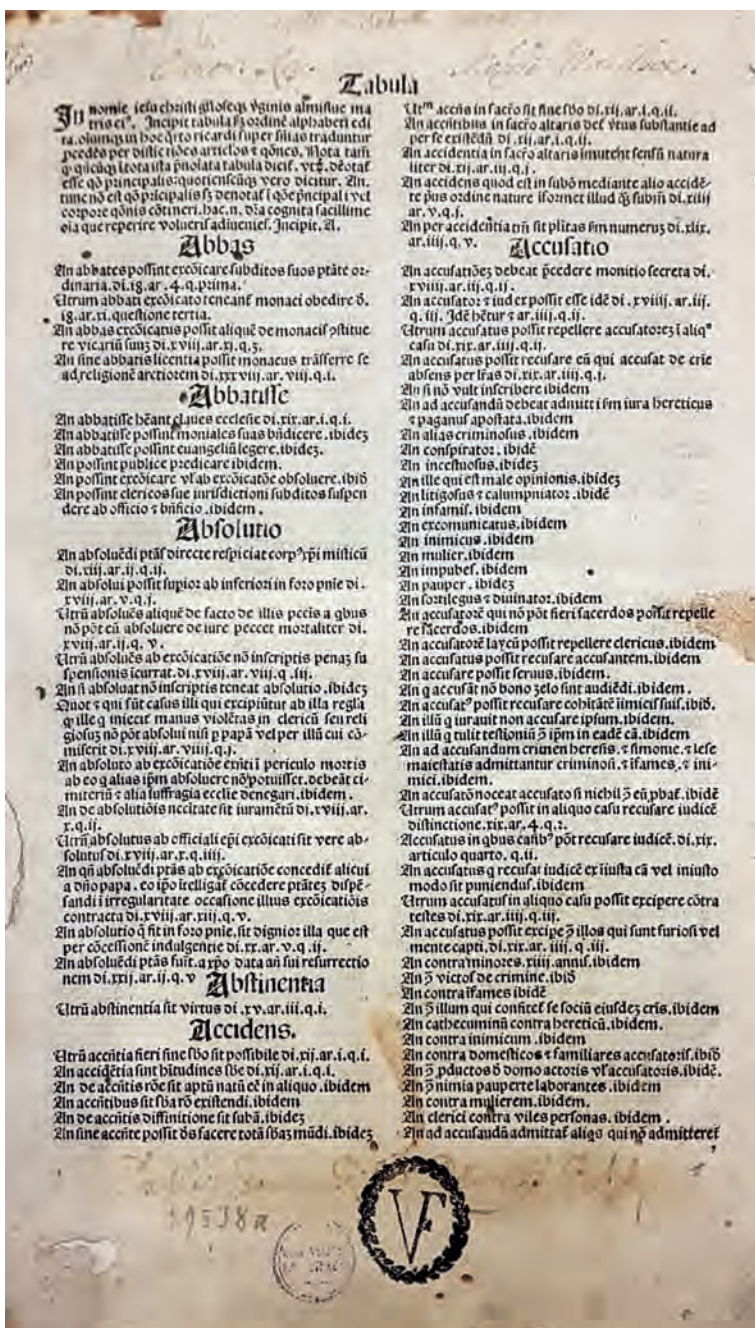 Tabula
In nomie iesu christi gl̃oseq̃ȝ v̓ginis almiflue ma
tris ei⁹. Incipit tabula ẜm ordinē alphabeti edi
ta. oĩumq̃ȝ in hoc q̃rto ricardi super s̃nias traduntur
p̃cedēs per distĩctiões articlos ⁊ q̃ones. Nota tam̃
q̃ q̃ñcũq̃ȝ ĩ tota ista p̃notata tabula dicit̃. vtȝ. deōtat̃
esse q̃o p̃ricipalis: quotienscũq̃ȝ vero dicitur. An.
tunc nō est q̃o p̃ricipalis sȝ denotat̃ i q̃oe p̃ncipal i vel
corpore q̃onis cōtineri. hac. n. dr̃a cognita facillime
oĩa que reperire volueris adiuenies. Incipit. A.
Abbas
An abbates possint excōicare subditos suos ptāte or⸗
dinaria. di. 18. ar. 4. q. prima.
Utrum abbati excōicato teneant̃ monaci obedire d̄.
18. ar. xi. questione tertia.
An abbas excōicatus possit aliquē de monacis ɔstitue
re vicariū suuȝ di. xviij. ar. xj. q. 3.
An sine abbatis licentia possit monacus trāsferre se
ad religionē arctiorem di. xxxviij. ar. viij. q. i.
Abbatisse
An abbatisse hēant claues ecclesie di. xix. ar. i. q. i.
An abbatisse possint moniales suas bñdicere. ibideȝ
An abbatisse possint euangeliū legere. ibideȝ.
An possint publice predicare ibidem.
An possint excōicare vl̃ ab excōicatōe obsoluere. ibid̄
An possint clericos sue iurisdictioni subditos suspen
dere ab officio ⁊ bñficio. ibidem.
Absolutio
An absoluēdi ptās directe respiciat corp⁹ xp̃i misticū
di. xiij. ar. ij. q. ij.
An absolui possit supior ab inferiori in foro pnie di.
xviij. ar. v. q. j.
Utrū absoluēs aliquē de facto de illis pccis a qbus
nō pōt eū absoluere de iure peccet mortaliter di.
xviij. ar. ij. q. v.
Utrū absoluēs ab excōicatiōe nō inscriptis penaȝ su
spensionis icurrat. di. xviij. ar. viij. q. iij.
An si absoluat nō inscriptis teneat absolutio. ibideȝ
Quot ⁊ qui sūt casus illi qui excipiūtur ab illa regl̃a
q̃ ille q̃ iniecit manus violētas in clericū seu reli
giosuȝ nō pōt absolui nisi p papā vel per illū cui cō⸗
miserit di. xviij. ar. viij. q. j.
An absoluto ab excōicatiōe exñti i periculo mortis
ab eo q̃ alias ip̃m absoluere nō potuisset. debeāt ci⸗
miteriū ⁊ alia suffragia ecclie denegari. ibidem.
An de absolutiōis nccitate sit iuramētū di. xviij. ar.
x. q. ij.
Utrū absolutus ab officiali ep̃i excōicati sit vere ab⸗
solutus di. xviij. ar. x. q. iiij.
An qñ absoluēdi ptās ab excōicatiōe concedit̃ alicui
a dño papa. eo ip̃o ĩtelligat̃ cōcedere ptāteȝ dispē⸗
sandi i irregularitate occasione illius excōicatiōis
contracta di. xviij. ar. xiij. q. v.
An absolutio q̃ fit in foro pnie. sit dignior illa que est
per cōcessionē indulgentie di. xx. ar. v. q. ij.
An absoluēdi ptās fuit. a xp̃o data añ sui resurrectio
nem di. xxij. ar. ij. q. v
Abstinentia
Utrū abstinentia sit virtus di. xv. ar. iii. q. i.
Accidens.
Utrū accñtia fieri sine s̃bō sit possibile di. xij. ar. i. q. i.
An accidētia sint hītudines s̃be di. xij. ar. i. q. i.
An de accñtis rōe sit aptū natū eē in aliquo. ibidem
An accñtibus sit s̃ba rō existendi. ibidem
An de accñtis diffinitione sit subā. ibideȝ
An sine accñte possit d̄s facere totā s̃baȝ mūdi. ibideȝ
Utᵐ accñs in sacr̃o sit sine s̃bō di. xij. ar. i. q. ii.
An accñtibus in sacr̃o altaris det̃ v̓tus substantie ad
per se existēdū di. xij. ar. i. q. ij.
An accidentia in sacr̃o altaris imutent sensū natura
liter di. xij. ar. iij. q. j.
An accidens quod est in subō mediante alio accidē⸗
te pus ordine nature iformet illud q̃ȝ subm̃ di. xliij
ar. v. q. j.
An per accidentia tm̃ sit pl̃itas ẜm numeruȝ di. xlix.
ar. iij. q. v.
Accusatio
An accusatiōeȝ debeat p̃cedere monitio secreta di.
xviiij. ar. iij. q. ij.
An accusator ⁊ iudex possit esse idē di. xviiij. ar. iij.
q. iij. Idē hētur ⁊ ar. iiij. q. ij.
Utrum accusatus possit repellere accusatoreȝ i aliq⁰
casu di. xix. ar. iiij. q. ij.
An accusatus possit recusare eū qui accusat de crīe
absens per lr̃as di. xix. ar. iiij. q. j.
An si nō vult inscribere ibidem
An ad accusandū debeat admitti ẜm iura hereticus
⁊ paganus apostata. ibidem
An alias criminosus. ibidem
An conspirator. ibidē
An incestuosus. ibideȝ
An ille qui est male opinionis. ibideȝ
An litigosus ⁊ calumpniator. ibidē
An infamis. ibidem
An excomunicatus. ibidem
An inimicus. ibidem
An mulier. ibidem
An impubes. ibidem
An pauper. ibideȝ
An sortilegus ⁊ diuinator. ibidem
An accusatorē qui nō pōt fieri sacerdos possit repelle
re sacerdos. ibidem
An accusatorē laycū possit repellere clericus. ibidem
An accusatus possit recusare accusantem. ibidem
An accusare possit seruus. ibidem
An q̃ accusāt nō bono zelo sint audiēdi. ibidem.
An accusat⁹ possit recusare cohītātē iimicis suis. ibid̄.
An illū q̃ iurauit non accusare ipsum. ibidem.
An illū q̃ tulit testīoniū ɔ̄ ip̃m in eadē cā. ibidem
An ad accusandum crimen heresis. ⁊ simonie. ⁊ lese
maiestatis admittantur criminosi. ⁊ ifames. ⁊ ini⸗
mici. ibidem.
An accusatō noceat accusato si nichil ɔ̄ eū pbat̃. ibidē
Utrum accusat⁹ possit in aliquo casu recusare iudicē
distinctione. xix. ar. 4. q. 2.
Accusatus in qbus casib⁹ pōt recusare iudicē. di. xix.
articulo quarto. q. ii.
An accusatus q̃ recusat iudicē ex iiusta cā vel iniusto
modo sit puniendus. ibidem
Utrum accusatus in aliquo casu possit excipere cōtra
testes di. xix. ar. iiij. q. iij.
An accusatus possit excipe ɔ̄ illos qui sunt furiosi vel
mente capti. di. xix. ar. iiij. q. iij.
An contra minores. xiiij. annis. ibidem
An ɔ̄ victos de crimine. ibid̄
An contra ifames ibidē
An ɔ̄ illum qui confitet̃ se sociū eiusdeȝ cr̃is. ibidem
An cathecuminū contra hereticū. ibidem.
An contra inimicum. ibidem
An contra domesticos ⁊ familiares accusatoris. ibid̄
An ɔ̄ pductos d̄ domo actoris vl̃ accusatoris. ibidē.
An ɔ̄ nimia pauperte laborantes. ibidem
An contra mulierem. ibidem.
An clerici contra viles personas. ibidem.
An ad accusandū admittat̃ aliqs qui nō admitteret̃
19538a
VF